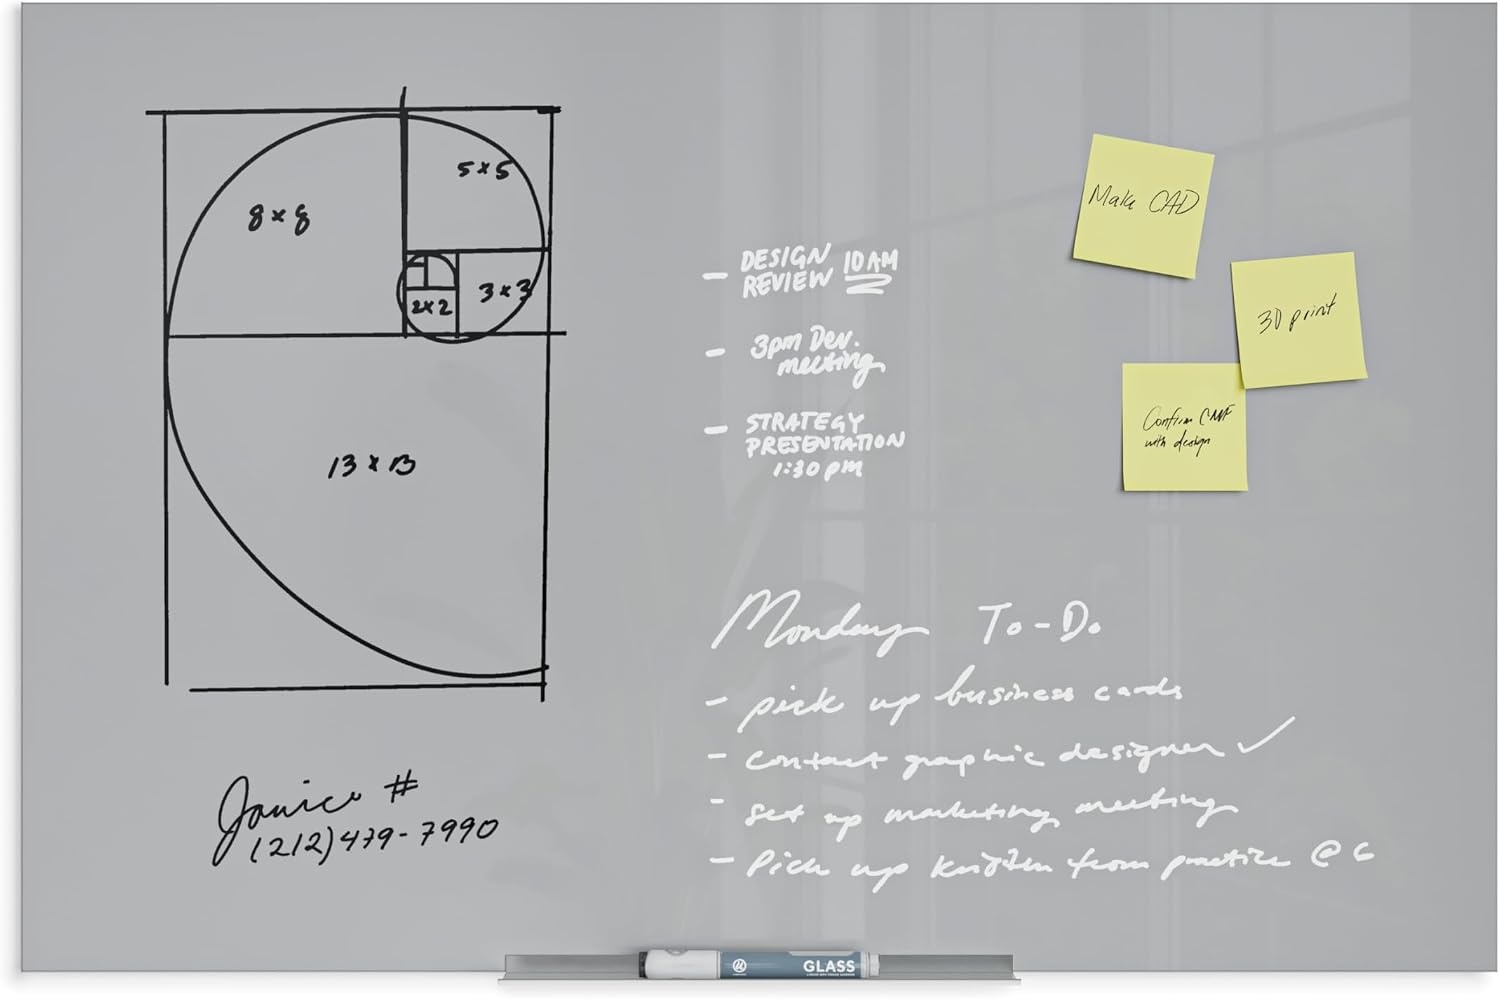 8 x 8
5 x 5
3 x 3
2 x 2
13 x 13
Janice #
(212) 479-7990
- DESIGN
REVIEW 10 AM
- 3pm Dev.
meeting
- STRATEGY
PRESENTATION
1:30 pm
Make CAD
3D print
Confirm CMF
with design
Monday To-Do
- pick up business cards
- contact graphic designer ✓
- set up marketing meeting
- Pick up kristen from practice @ 6
GLASS